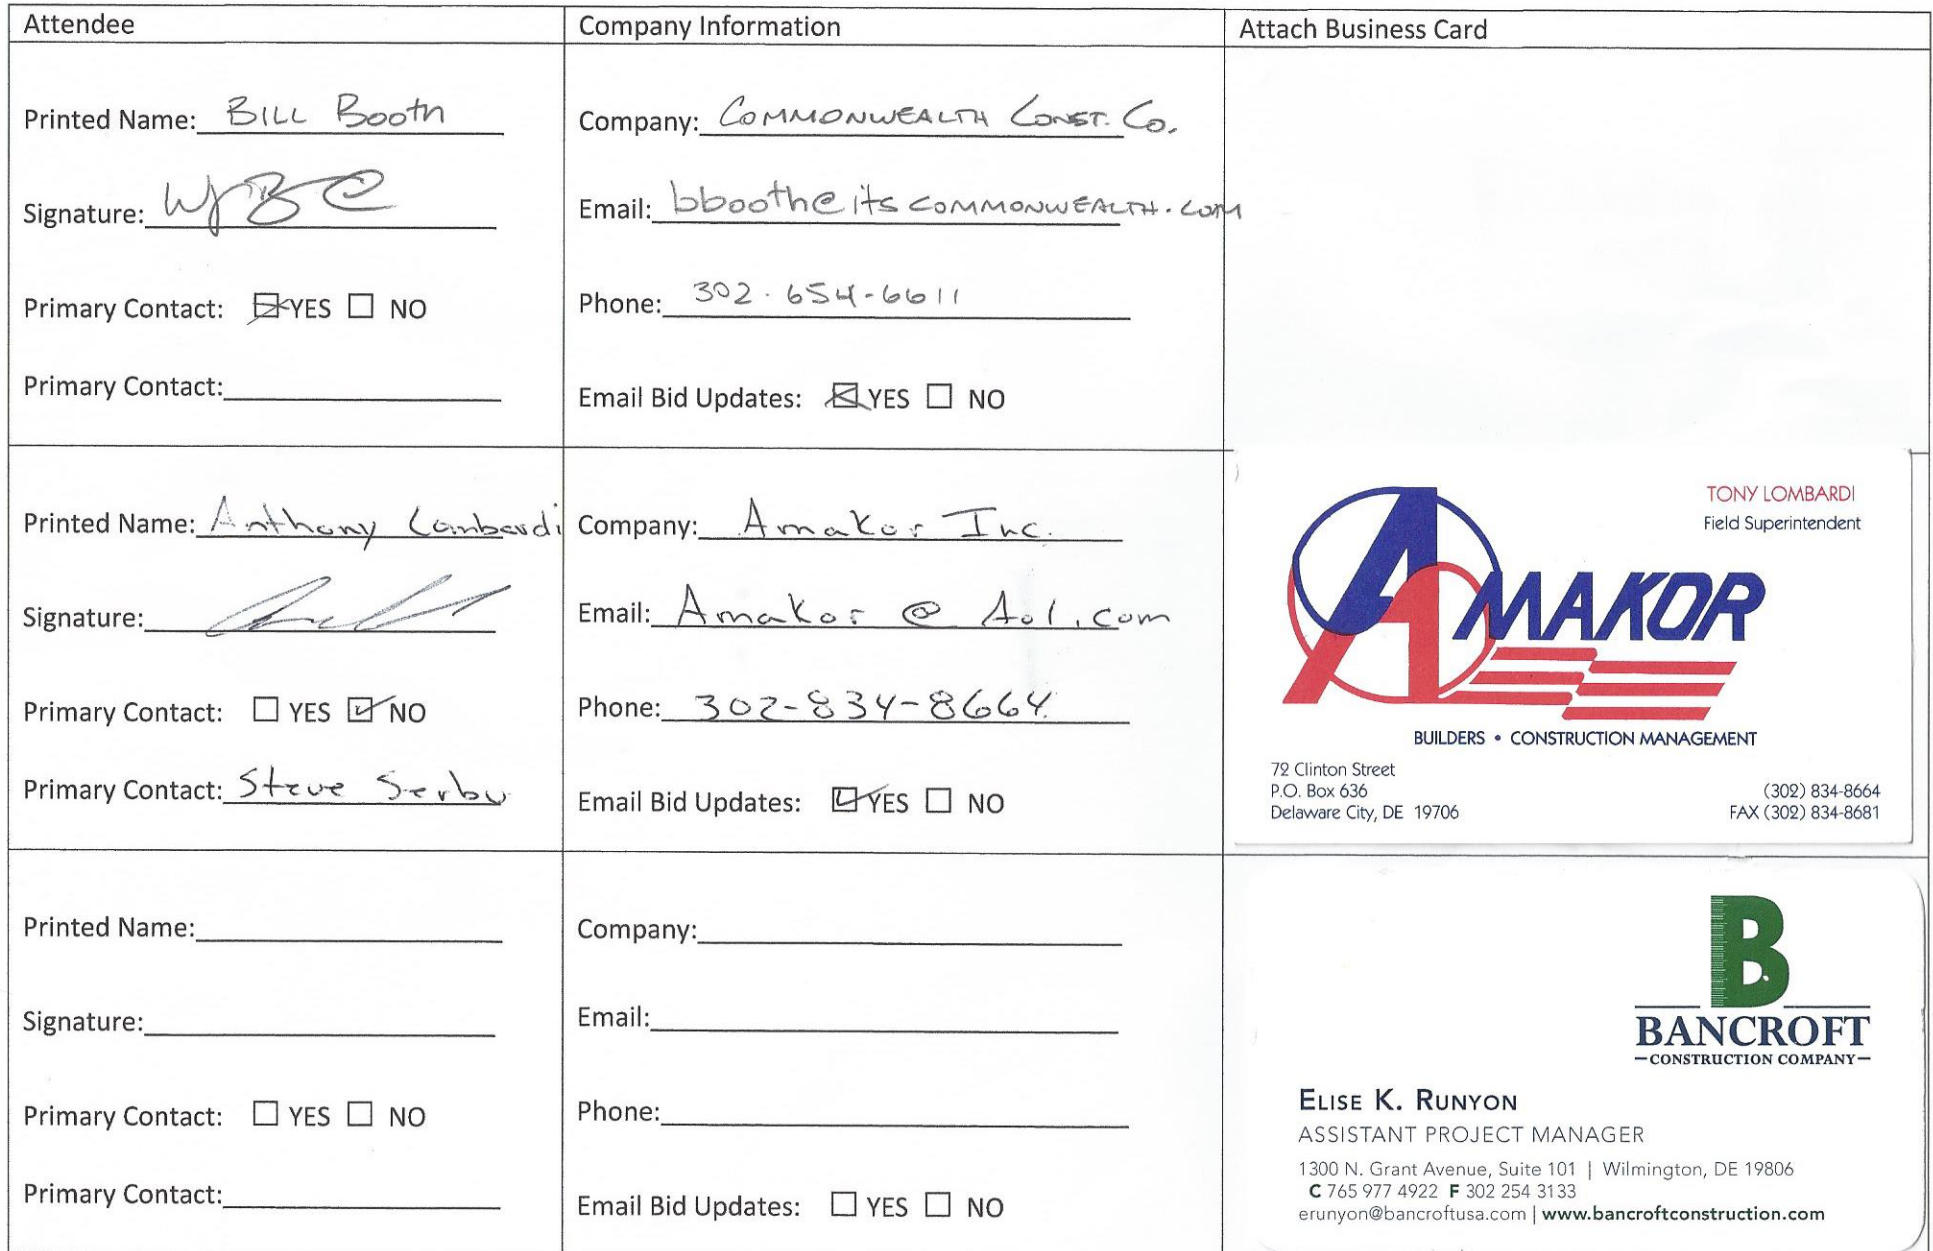 Attendee
Company Information
Attach Business Card
Printed Name: BILL Booth
Signature:
Primary Contact: YES NO
Primary Contact:
Company: COMMONWEALTH CONST. CO.
Email: bbooth@itscommonwealth.com
Phone: 302-654-6611
Email Bid Updates: YES NO
Printed Name: Anthony Lombardi
Signature:
Primary Contact: YES NO
Primary Contact: Steve Serbu
Company: Amakor Inc.
Email: Amakor @ Aol.com
Phone: 302-834-8664
Email Bid Updates: YES NO
TONY LOMBARDI
Field Superintendent
AMAKOR
BUILDERS • CONSTRUCTION MANAGEMENT
72 Clinton Street
P.O. Box 636
Delaware City, DE 19706
(302) 834-8664
FAX (302) 834-8681
Printed Name:
Signature:
Primary Contact: YES NO
Primary Contact:
Company:
Email:
Phone:
Email Bid Updates: YES NO
B
BANCROFT
CONSTRUCTION COMPANY
ELISE K. RUNYON
ASSISTANT PROJECT MANAGER
1300 N. Grant Avenue, Suite 101 | Wilmington, DE 19806
C 765 977 4922 F 302 254 3133
erunyon@bancroftusa.com | www.bancroftconstruction.com